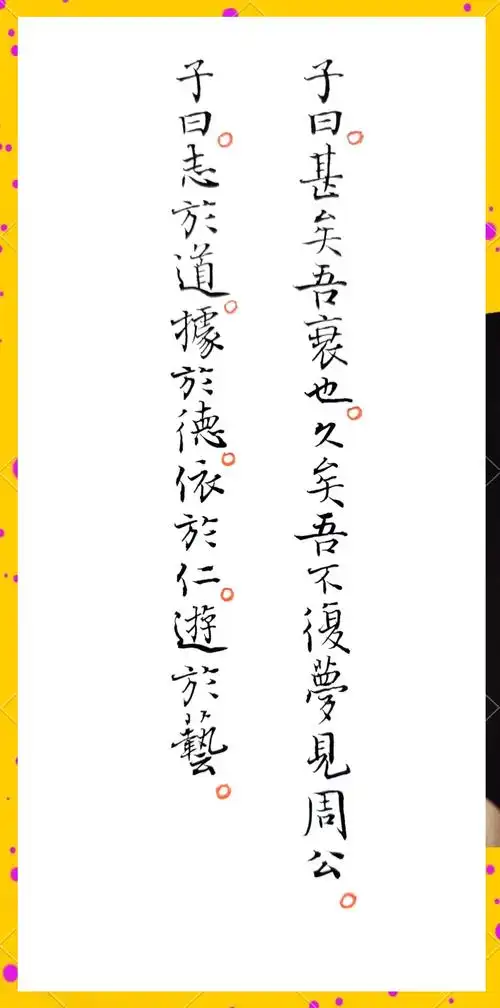 子曰。甚矣吾衰也。久矣吾不復夢見周公。
子曰。志於道。據於德。依於仁。遊於藝。